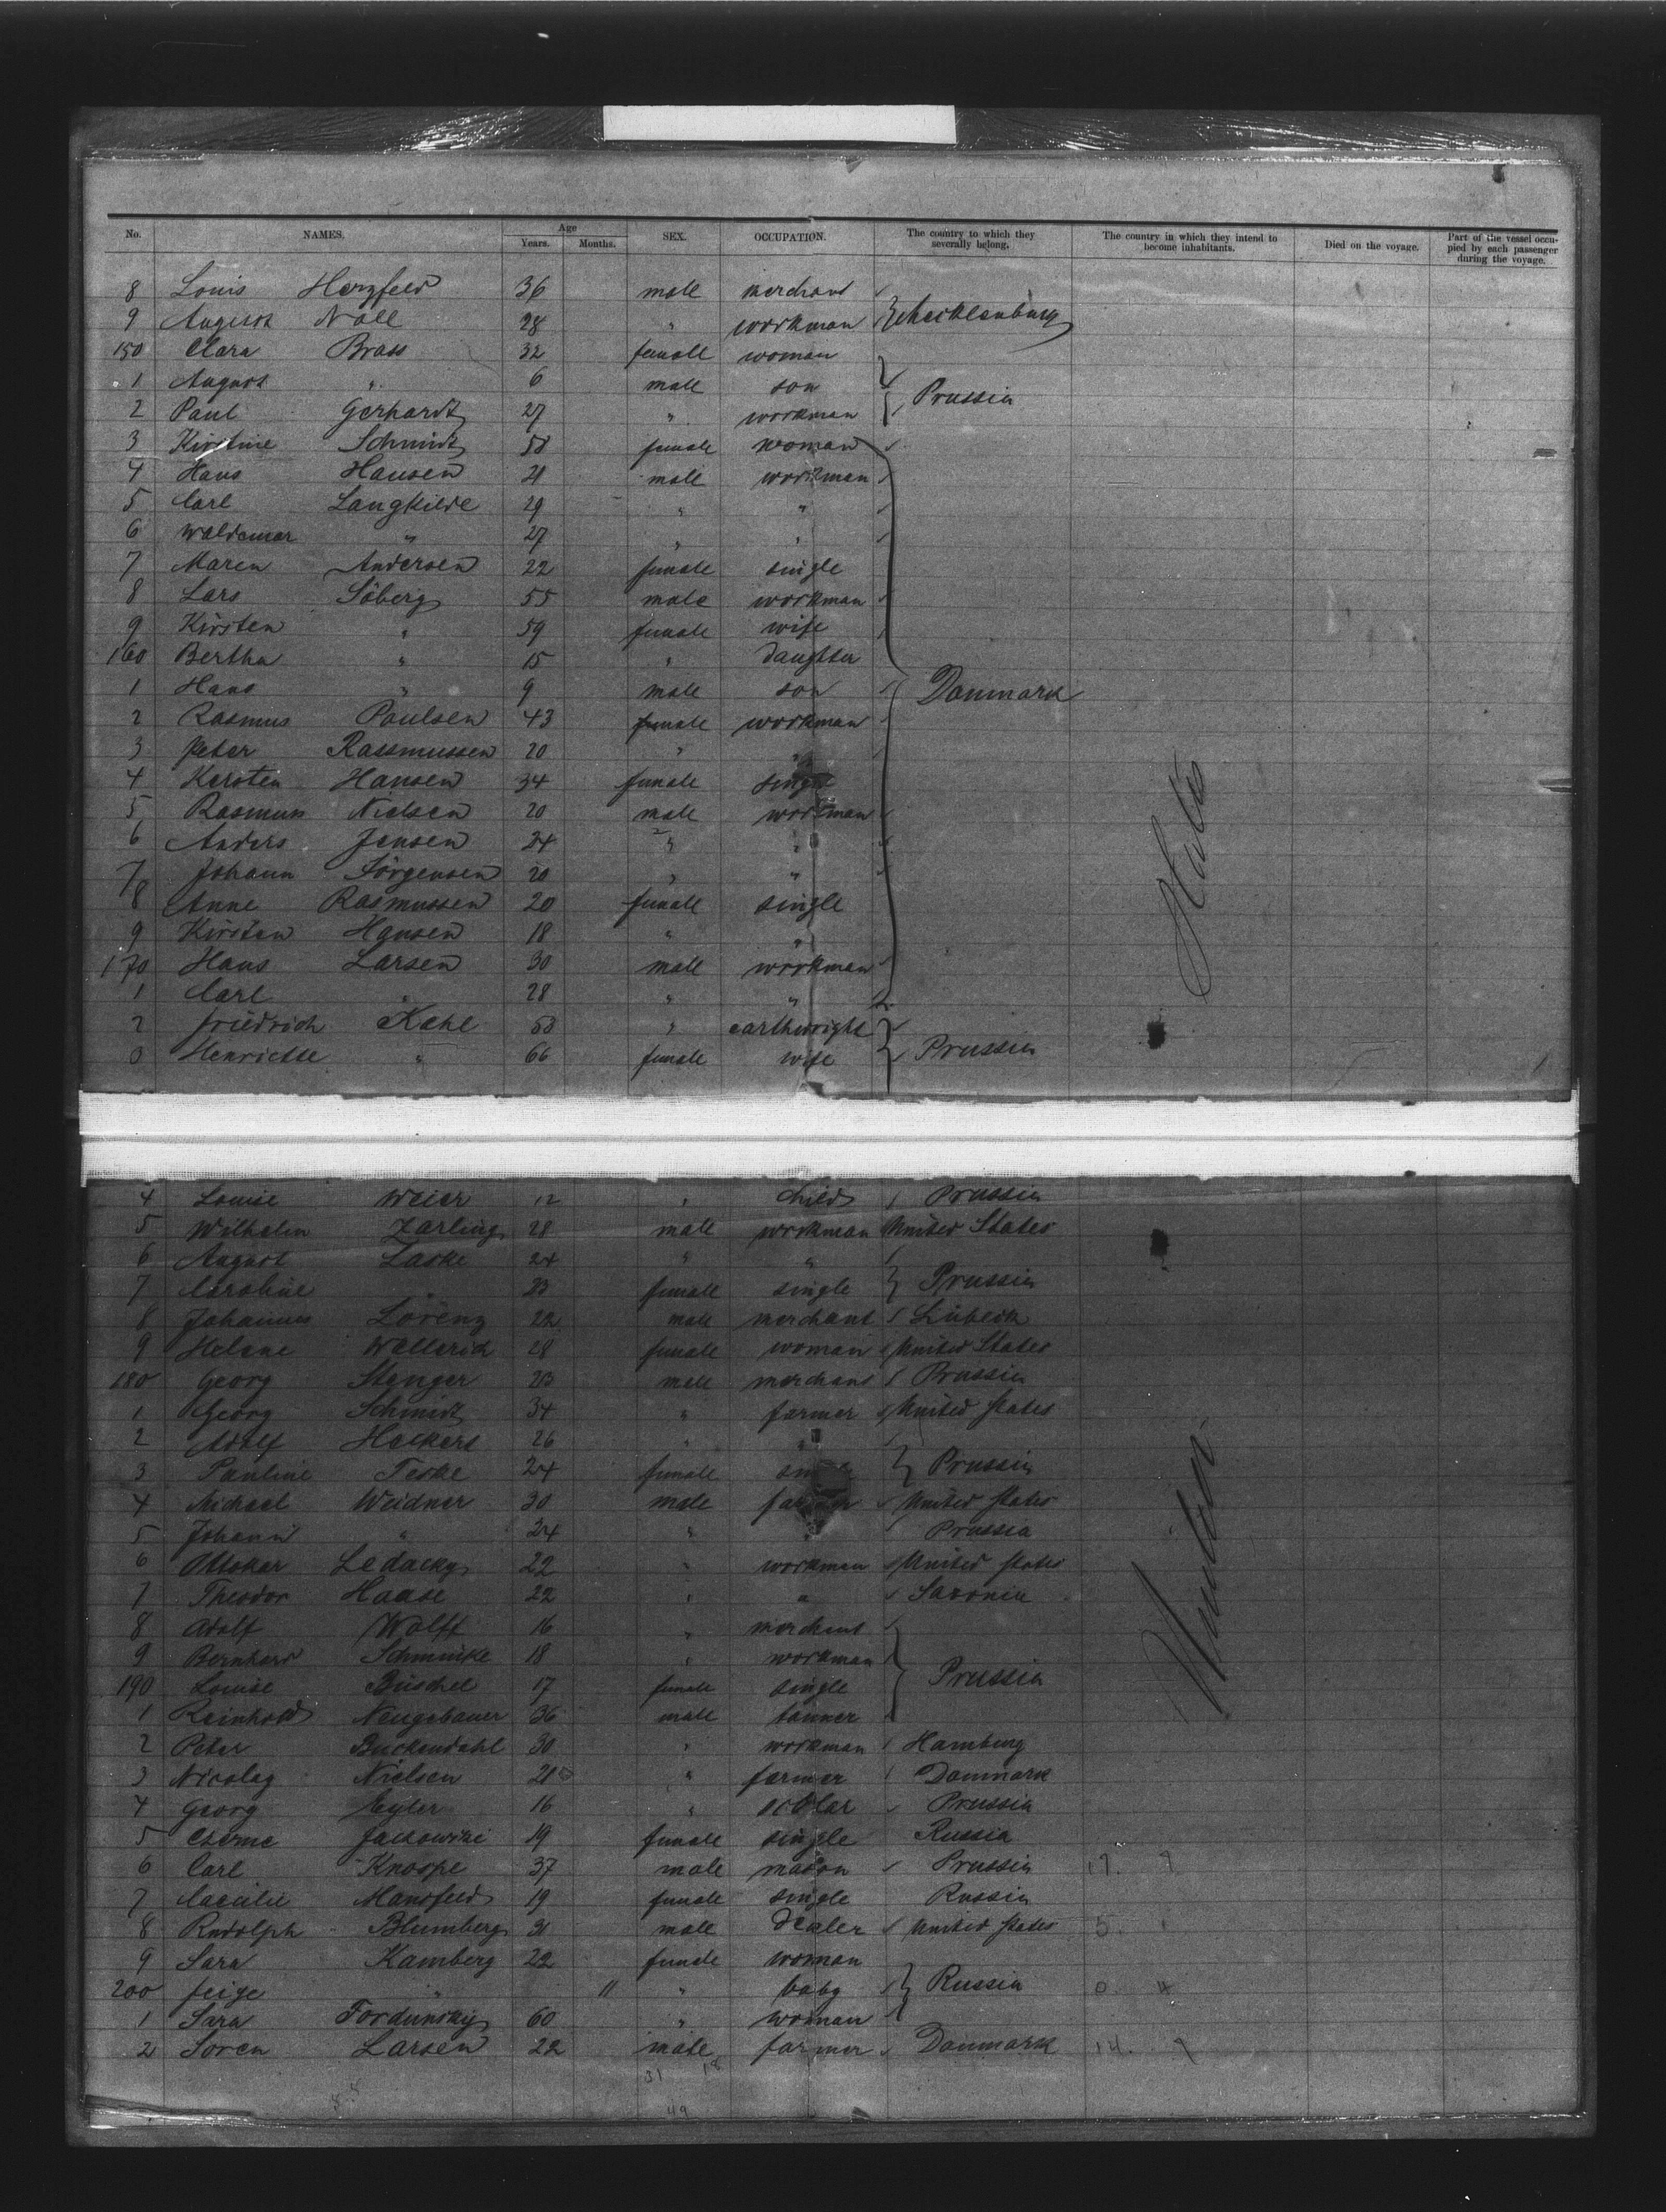 No. NAMES. Age Years. Months. SEX. OCCUPATION. The country to which they severally belong. The country in which they intend to become inhabitants. Died on the voyage. Part of the vessel occupied by each passenger during the voyage.
8 Louis Herzfeld 36 male merchant
9 August Nöll 28 " workman Mecklenburg
150 Clara Brass 32 female woman
1 August " 6 male son Prussia
2 Paul Gerhardt 27 " workman
3 Kirstine Schmidt 58 female woman
4 Hans Hansen 21 male workman
5 Carl Langkilde 29 " "
6 Waldemar " 27 " "
7 Maren Andersen 22 female single
8 Lars Söberg 55 male workman
9 Kirsten " 59 female wife
160 Bertha " 15 " daughter
1 Hans " 9 male son Danmark
2 Rasmus Paulsen 43 female workman
3 Peter Rassmussen 20 " "
4 Kersten Hansen 34 female single
5 Rasmus Nielsen 20 male workman
6 Anders Jensen 24 " "
7 Johann Jörgensen 20 " "
8 Anne Rasmussen 20 female single
9 Kirsten Hansen 18 " "
170 Hans Larsen 30 male workman
1 Carl " 28 " "
2 Friedrich Kehl 53 " carthwright
3 Henriette " 66 female wife Prussia
4 Louise Weier 12 " child Prussia
5 Wilhelm Zarling 28 male workman United States
6 August Laske 24 " "
7 Caroline " 23 female single Prussia
8 Johannes Lorenz 22 male merchant Lübeck
9 Helene Wellerich 28 female woman United States
180 Georg Stenger 23 male merchant Prussia
1 Georg Schmidt 34 " farmer United States
2 Adolf Heckert 26 " "
3 Pauline Teske 24 female single Prussia
4 Michael Weidner 30 male farmer United States
5 Johann " 24 " Prussia
6 Ottokar Ledacky 22 " workman United States
7 Theodor Haase 22 " " Saxonia
8 Adolf Wolff 16 " merchant
9 Bernhard Schmincke 18 " workman
190 Louise Büschel 17 female single Prussia
1 Reinhold Neugebauer 36 male tanner
2 Peter Buckendahl 30 " workman Hamburg
3 Nicolay Nielsen 21 " farmer Danmark
4 Georg Eyler 16 " scolar Prussia
5 Czerne Jackowski 19 female single Russia
6 Carl Knospe 37 male mason Prussia 17.
7 Caecilie Mansfeld 19 female single Russia
8 Rudolph Blumberg 31 male dealer United States 5.
9 Sara Kamberg 22 female woman
200 Feige " 11 " baby Russia 0. 4
1 Sara Fordunsky 60 " woman
2 Soren Larsen 22 male farmer Danmark 14. 9
31 18
49
United States